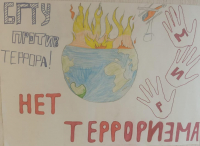 БГТУ
ПРОТИВ
ТЕРРОРА!
М
И
Г
НЕТ
ТЕРРОРИЗМА